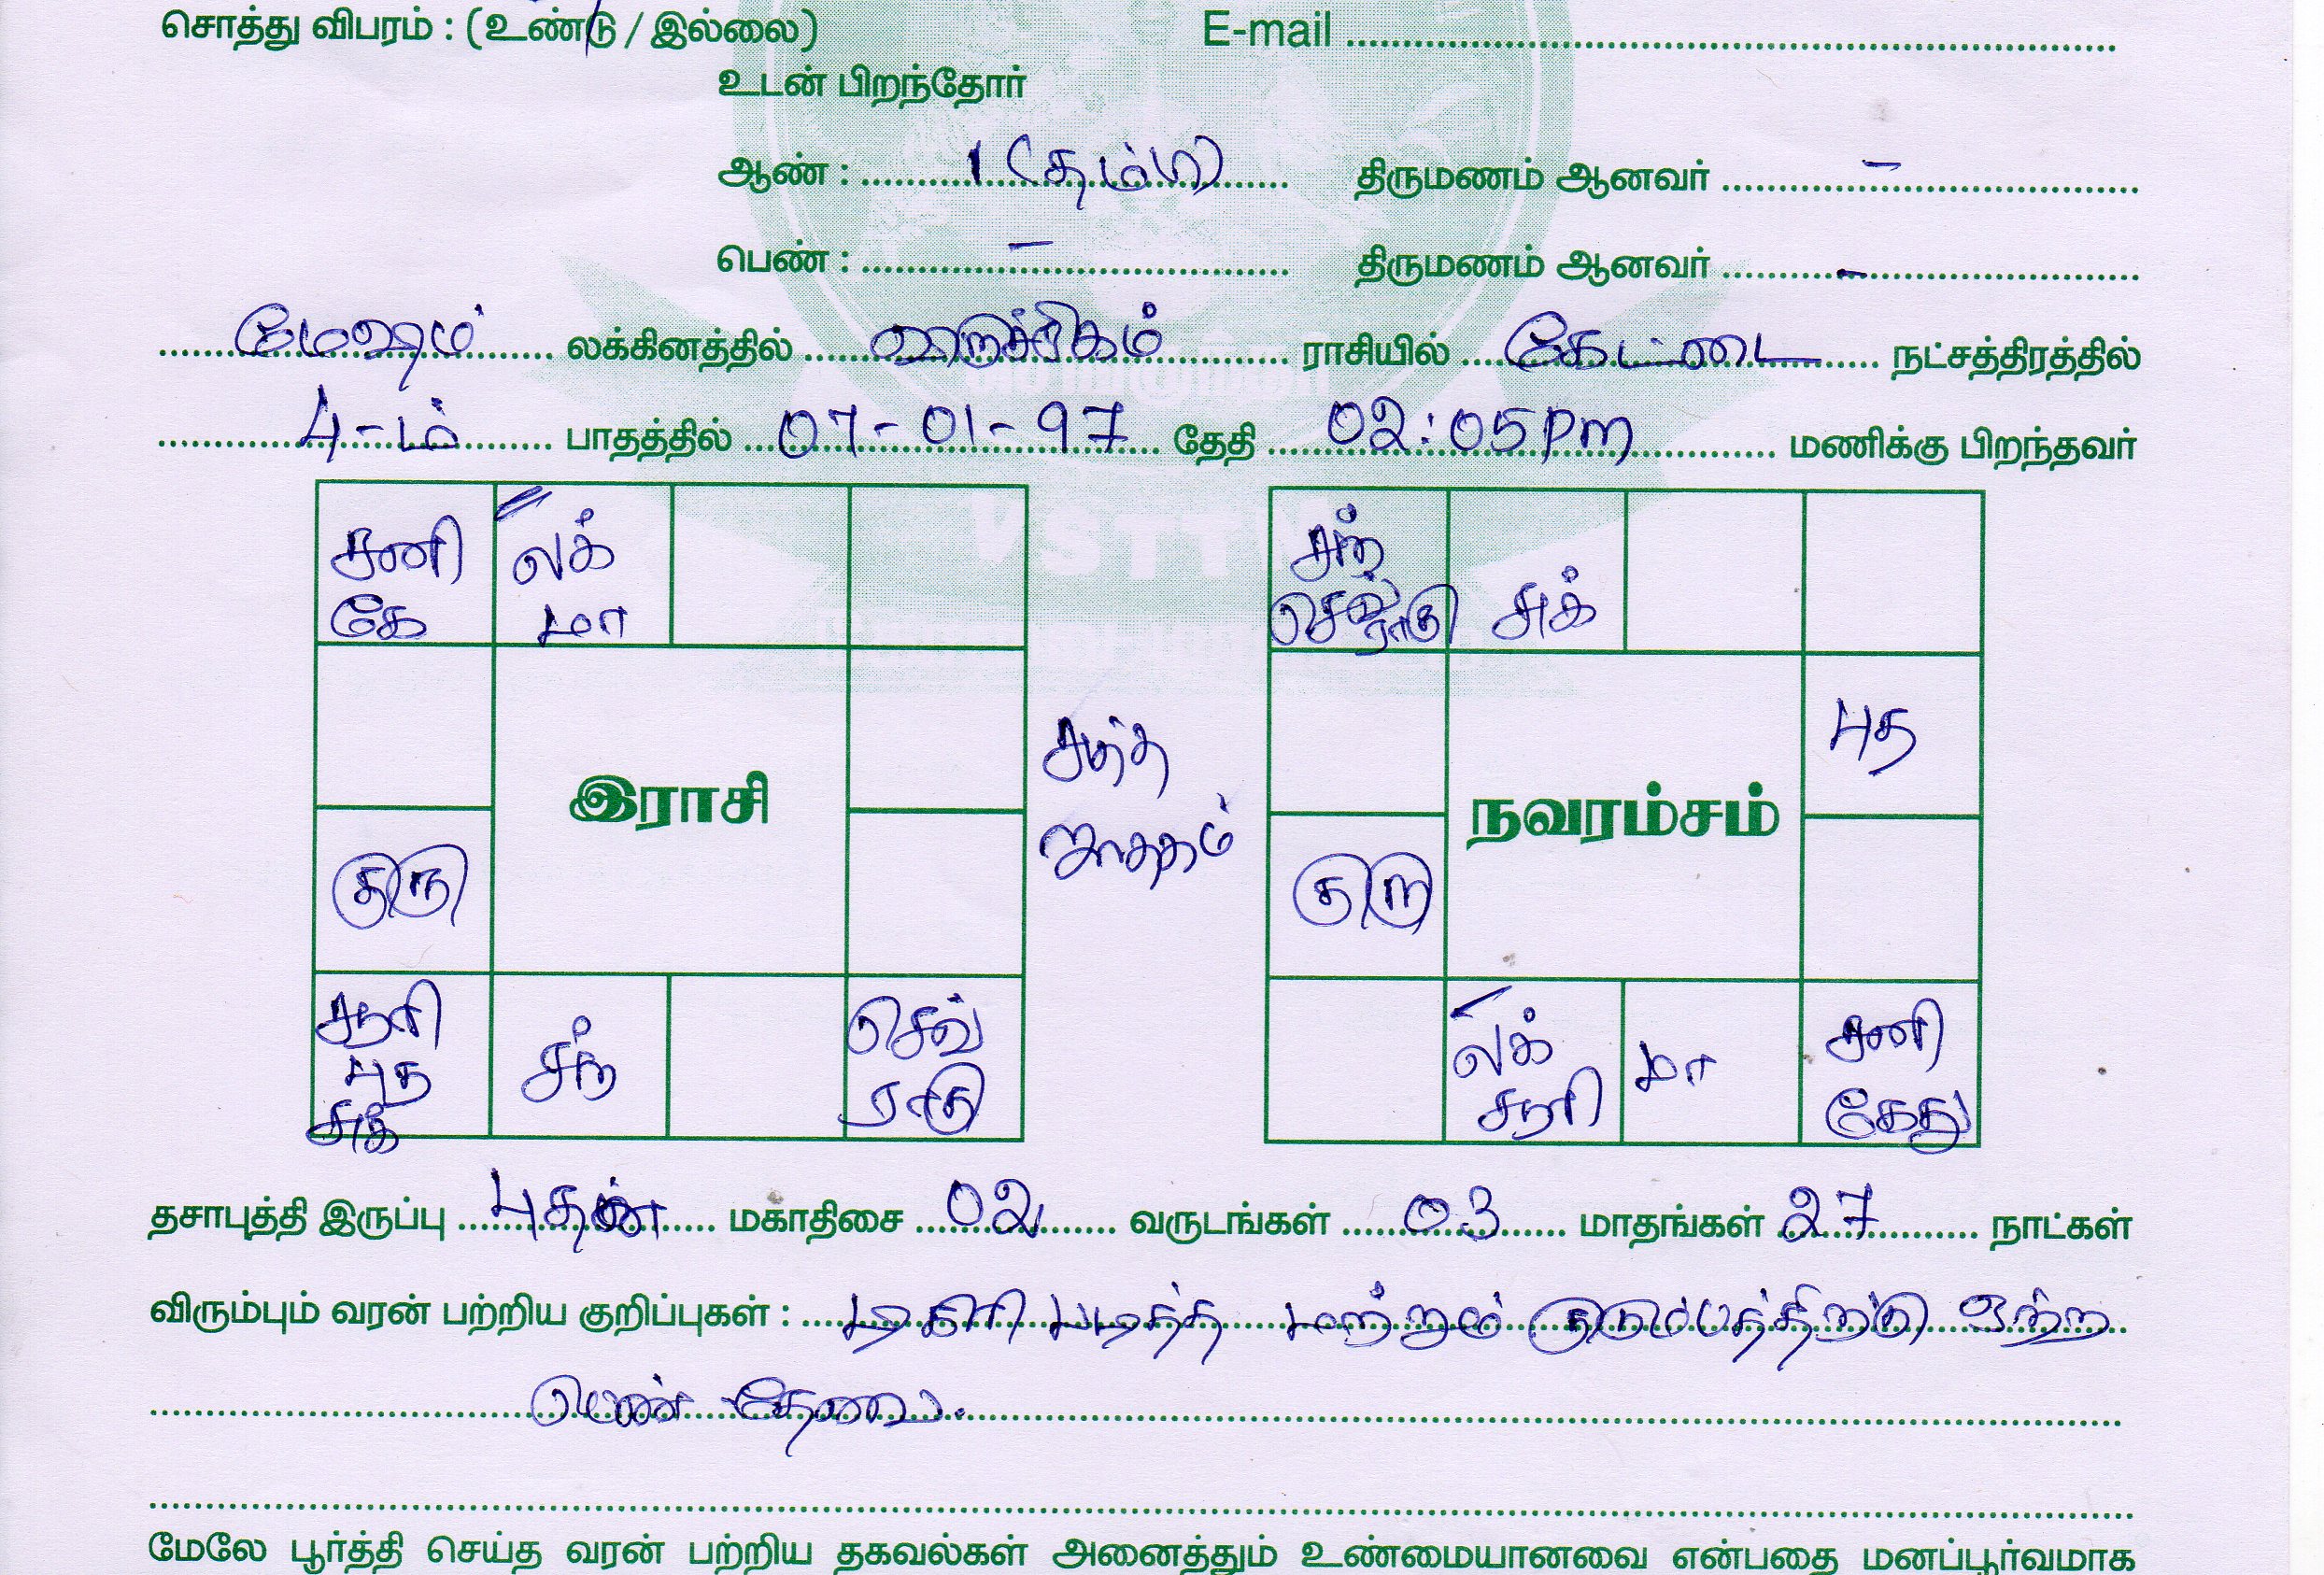 சொத்து விபரம் : (உண்டு / இல்லை) E-mail
உடன் பிறந்தோர்
ஆண் : 1 (தம்பி) திருமணம் ஆனவர் -
பெண் : - திருமணம் ஆனவர் -
மேஷம் லக்கினத்தில் விருச்சிகம் ராசியில் கேட்டை நட்சத்திரத்தில்
4-ம் பாதத்தில் 07-01-97 தேதி 02:05 Pm மணிக்கு பிறந்தவர்
சனி லக் சந் சுக்
கே மா செவ் ராகு
இராசி சுத்த புத நவரம்சம்
ஜாதகம்
குரு குரு
சூரி சந் செவ் லக் மா சனி
புத ராகு சூரி கேது
சுக்
தசாபுத்தி இருப்பு புதன் மகாதிசை 02 வருடங்கள் 03 மாதங்கள் 27 நாட்கள்
விரும்பும் வரன் பற்றிய குறிப்புகள் : டிகிரி படித்த மற்றும் குடும்பத்திற்கு ஏற்ற
பெண் தேவை.
மேலே பூர்த்தி செய்த வரன் பற்றிய தகவல்கள் அனைத்தும் உண்மையானவை என்பதை மனப்பூர்வமாக